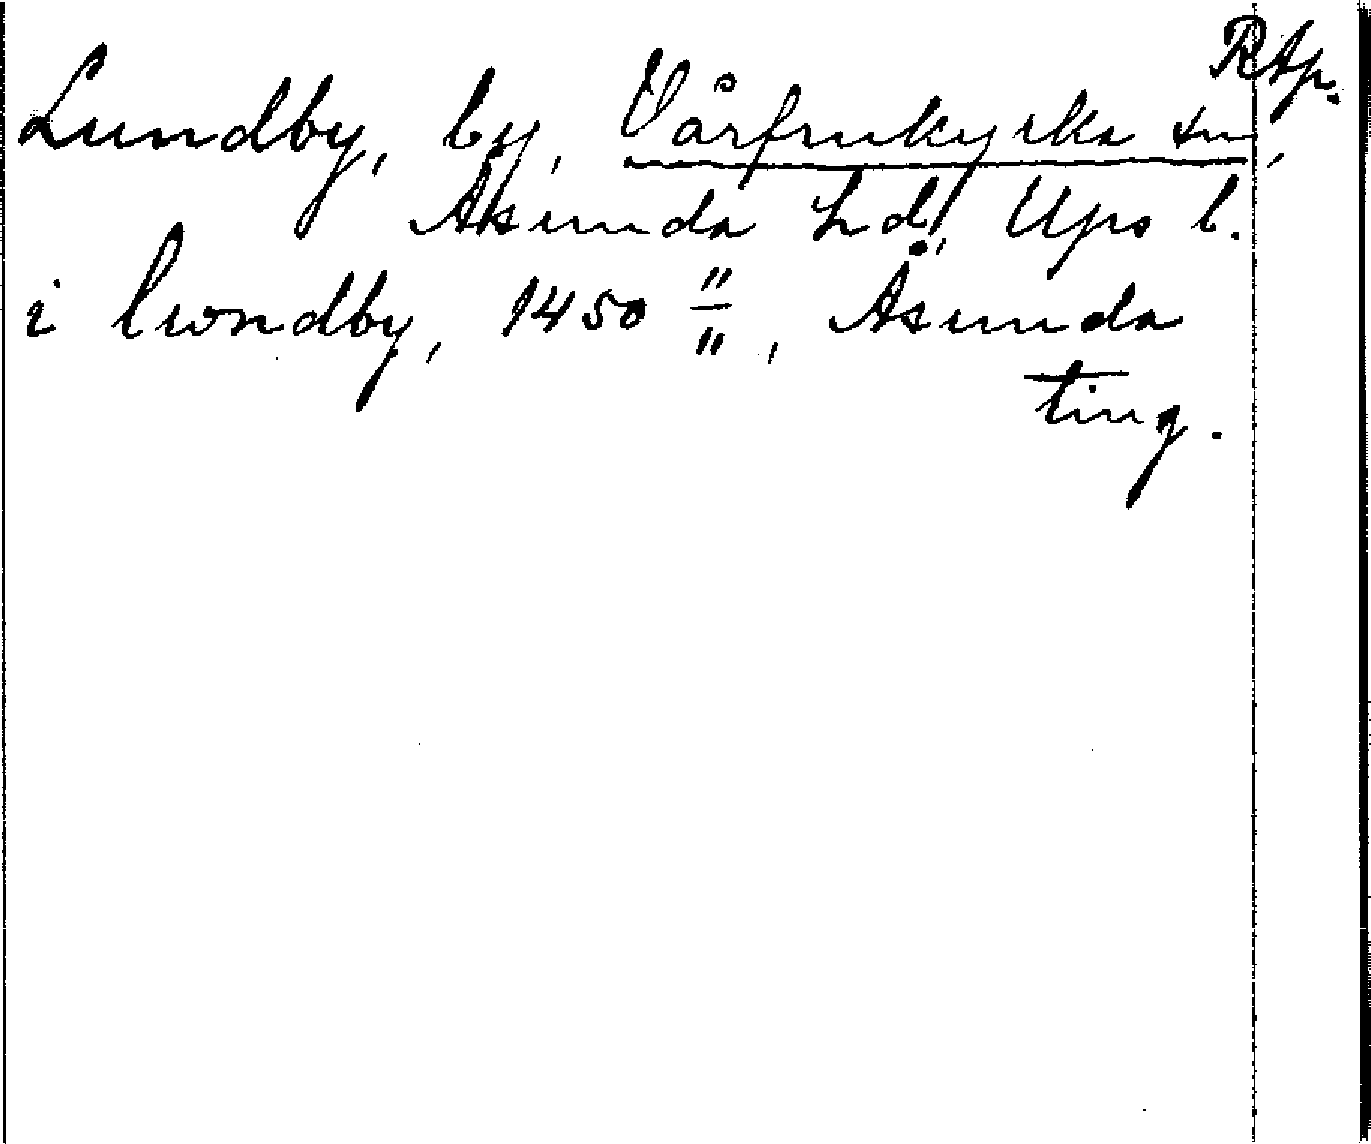 RAp.
Lundby, by, Vårfrukyrka sn,
Åsunda hd, Ups l.
i lwndby, 1450 11/11, Åsunda
ting.